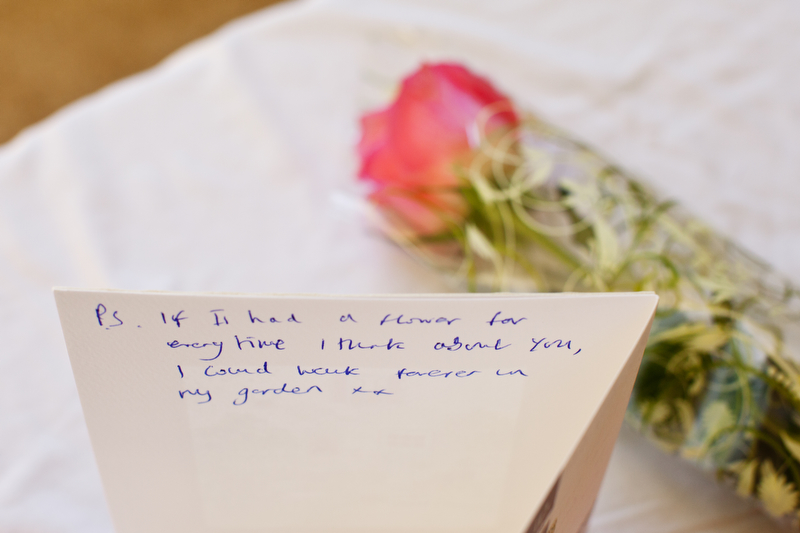 P.S. If I had a flower for
everytime I think about you,
I could walk forever in
my garden xx